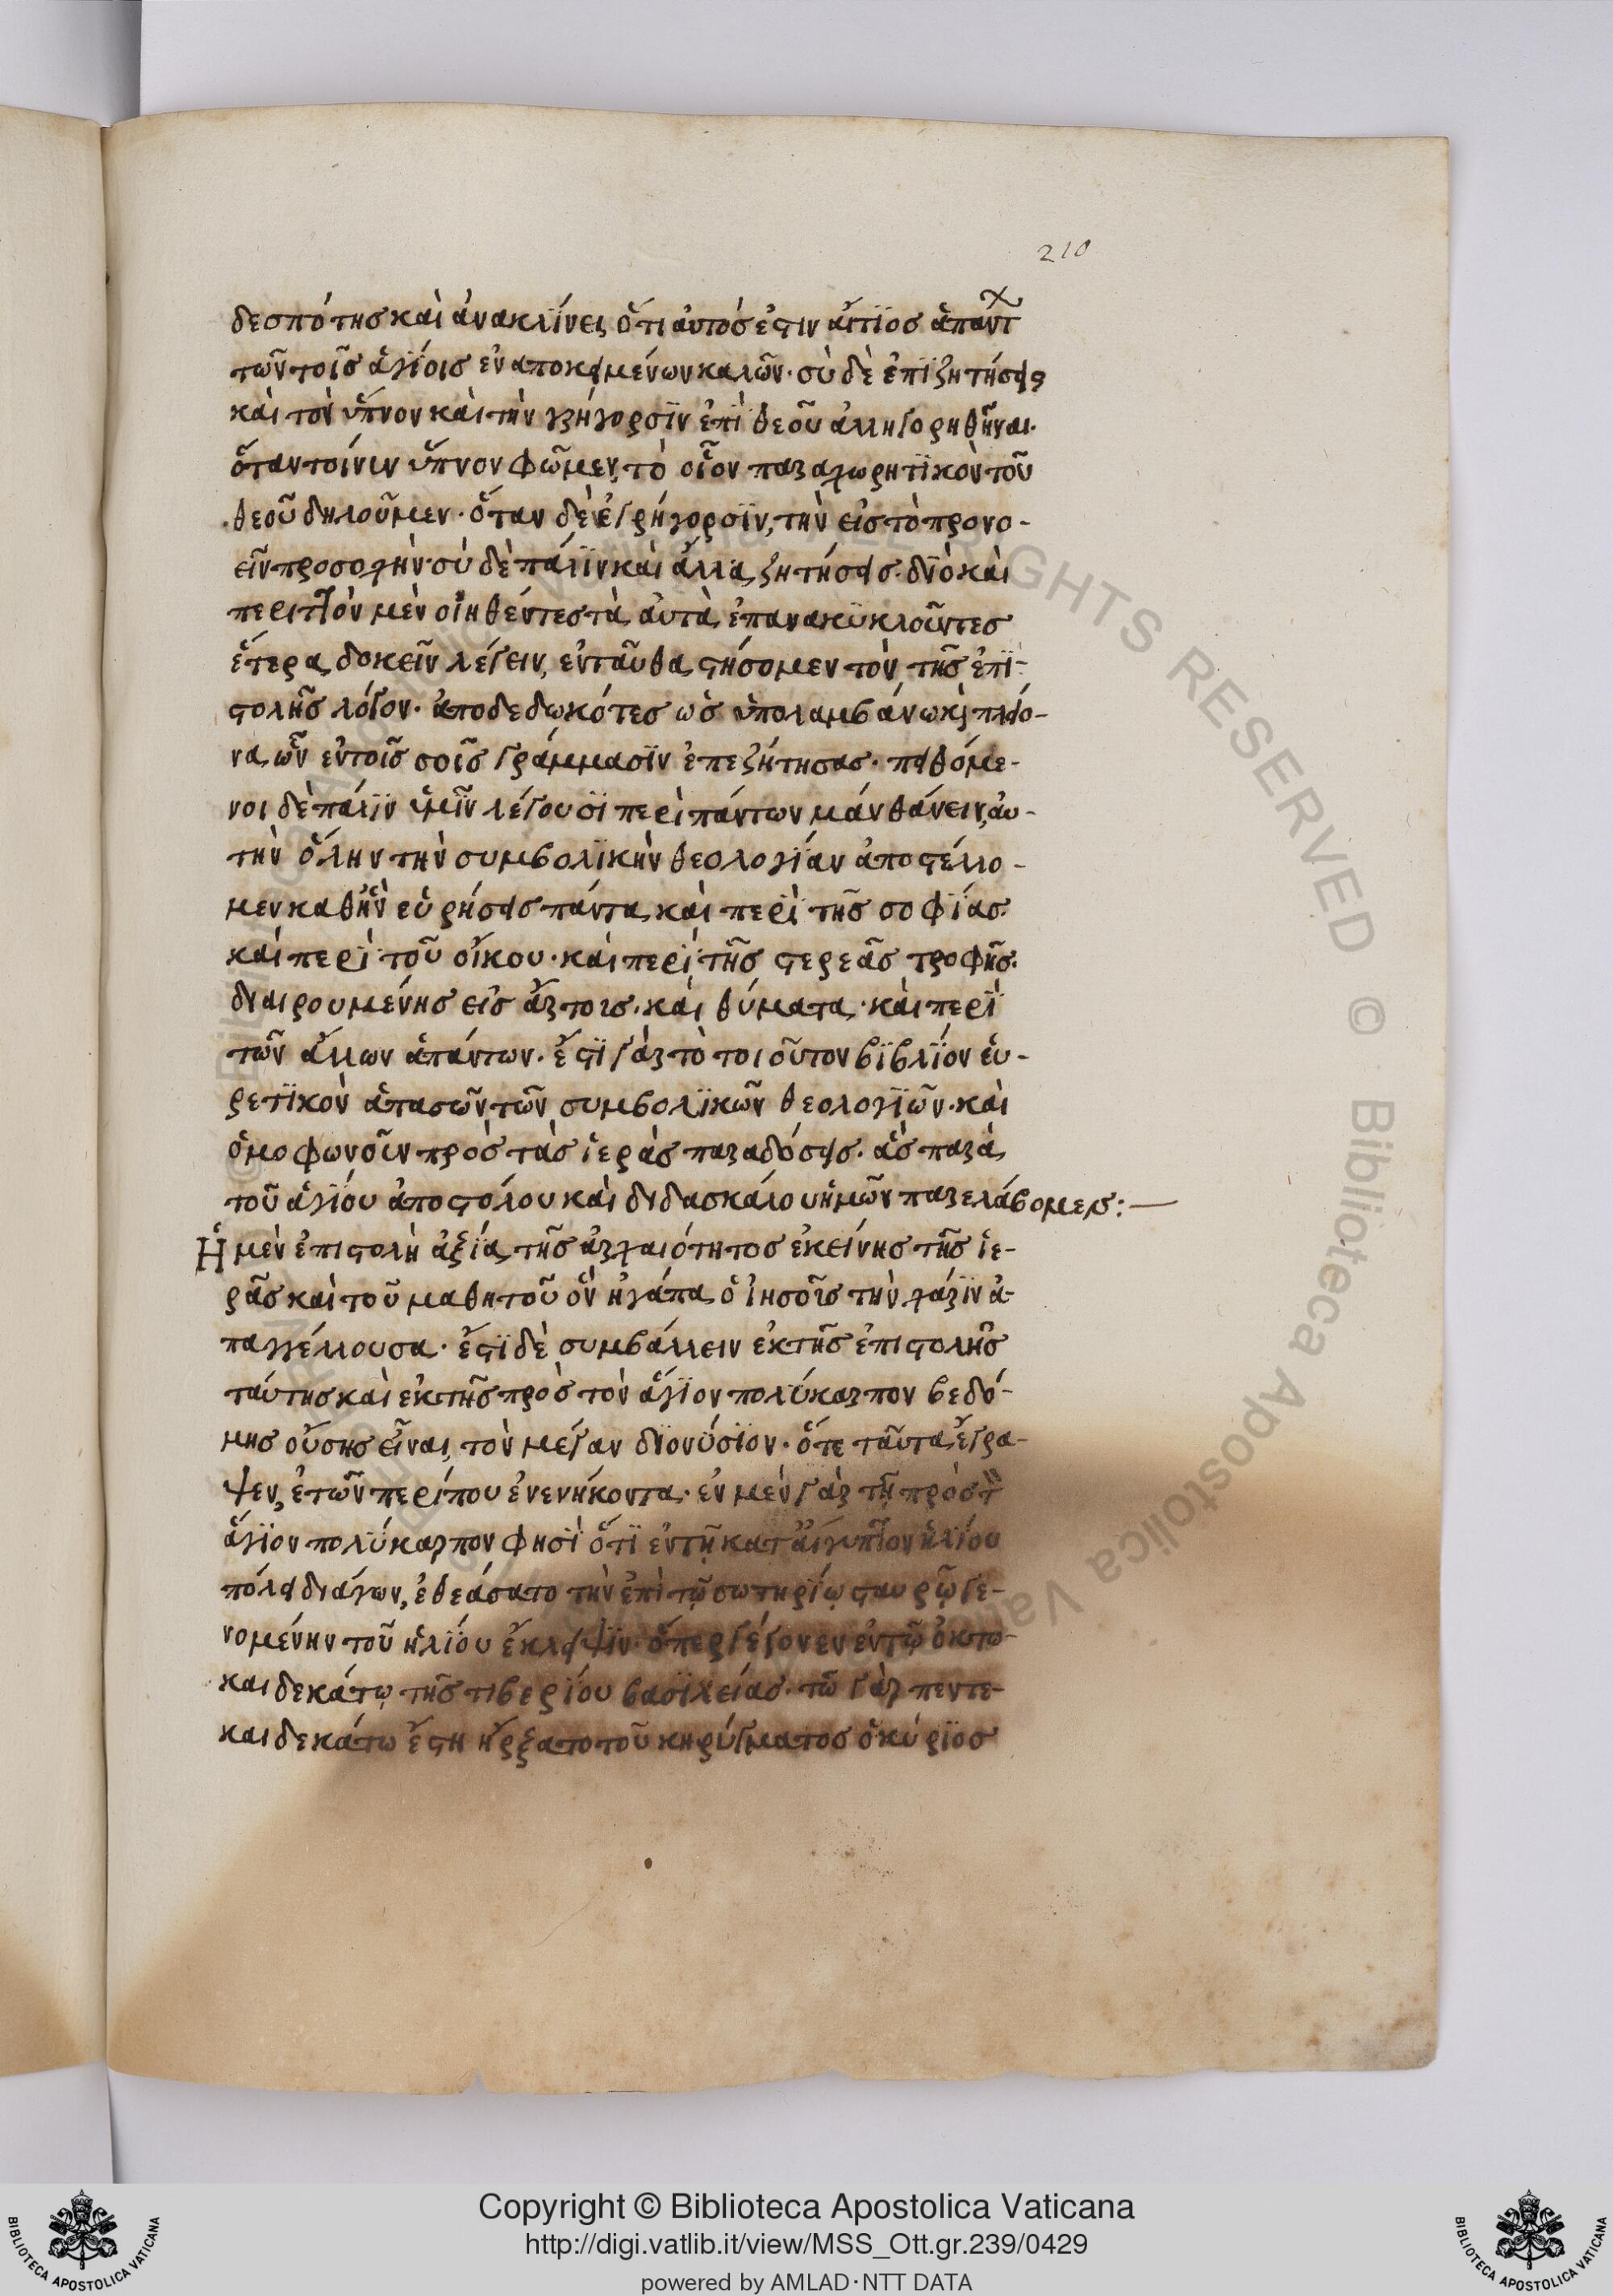 210
δεσπότης καὶ ἀνακλίνει, ὅτι αὐτός ἐστιν αἴτϊος ἁπάντ
τῶν τοῖς ἁγϊοις ἐναποκειμένων καλῶν· σὺ δὲ ἐπϊζητήσεις
καὶ τὸν ὕπνον καὶ τὴν γρήγορσϊν ἐπὶ θεοῦ ἀλληγορηθῆναι·
ὅταν τοίνυν ὕπνον φῶμεν, τὸ οἷον παραχωρητϊκὸν τοῦ
θεοῦ δηλοῦμεν· ὅταν δὲ ἐγρήγορσϊν, τὴν εἰς τὸ προνο-
εῖν προσοχήν· σὺ δὲ πάλϊν καὶ ἄλλα ζητήσεις· δϊὸ καὶ
περιττὸν μὲν οἰηθέντες τὰ αὐτὰ ἐπανακϋκλοῦντες
ἕτερα δοκεῖν λέγειν, ἐνταῦθα στήσομεν τὸν τῆς ἐπϊ-
στολῆς λόγον· ἀποδεδωκότες ὡς ὑπολαμβάνω κὶ πλείο-
να, ὧν ἐν τοῖς σοῖς γράμμασϊν ἐπεζήτησας· πειθόμε-
νοι δὲ πάλϊν ὑμῖν λέγουσϊ περὶ πάντων μανθάνειν, αὐ-
τὴν ὅλην τὴν συμβολϊκὴν θεολογϊαν ἀποστέλλο-
μεν καθ ἣν εὑρήσεις πάντα, καὶ περὶ τῆς σοφϊας·
καὶ περὶ τοῦ οἴκου· καὶ περὶ τῆς στερεᾶς τροφῆς·
διαιρουμένης εἰς ἄρτους· καὶ θύματα· καὶ περὶ
τῶν ἄλλων ἁπάντων· ἔστϊ γὰρ τὸ τοιοῦτον βϊβλϊον εὑ-
ρετϊκὸν ἁπασῶν τῶν συμβολϊκῶν θεολογϊῶν· καὶ
ὁμοφωνοῦν πρὸς τὰς ἱερὰς παραδόσεις· ἃς παρὰ
τοῦ ἁγϊου ἀποστόλου καὶ διδασκάλου ἡμῶν παρελάβομεν:—
Ἡ μὲν ἐπιστολὴ ἀξία τῆς ἀρχαιότητος ἐκείνης τῆς ἱε-
ρᾶς καὶ τοῦ μαθητοῦ ὃν ἠγάπα ὁ ἰησοῦς τὴν χάρϊν ἀ-
παγγέλλουσα· ἔστϊ δὲ συμβάλλειν ἐκ τῆς ἐπιστολῆς
ταύτης καὶ ἐκ τῆς πρὸς τὸν ἅγϊον πολύκαρπον ἑβδό-
μης οὔσης εἶναι, τὸν μέγαν δϊονύσϊον· ὅτε ταῦτα ἔγρα-
ψεν, ἐτῶν περίπου ἐνενήκοντα· ἐν μὲν γὰρ τῇ πρὸς τ
ἅγϊον πολύκαρπον φησϊ ὅτϊ ἐν τῇ κατ αἴγυπτον ἡλϊου
πόλει διάγων, ἐθεάσατο τὴν ἐπὶ τῷ σωτηρϊῳ σταυρῷ γε-
νομένην τοῦ ἡλϊου ἔκλειψϊν· ὅπερ γέγονεν ἐν τῷ ὀκτω-
καιδεκάτῳ τῆς τιβερϊου βασϊλείας· τῶ γὰρ πεντε-
καιδεκάτω ἔστη ἤρξατο τοῦ κηρύγματος ὁ κύρϊος
ALL RIGHTS RESERVED © Biblioteca Apostolica Vaticana
Copyright © Biblioteca Apostolica Vaticana
http://digi.vatlib.it/view/MSS_Ott.gr.239/0429
powered by AMLAD·NTT DATA
BIBLIOTECA APOSTOLICA VATICANA
BIBLIOTECA APOSTOLICA VATICANA